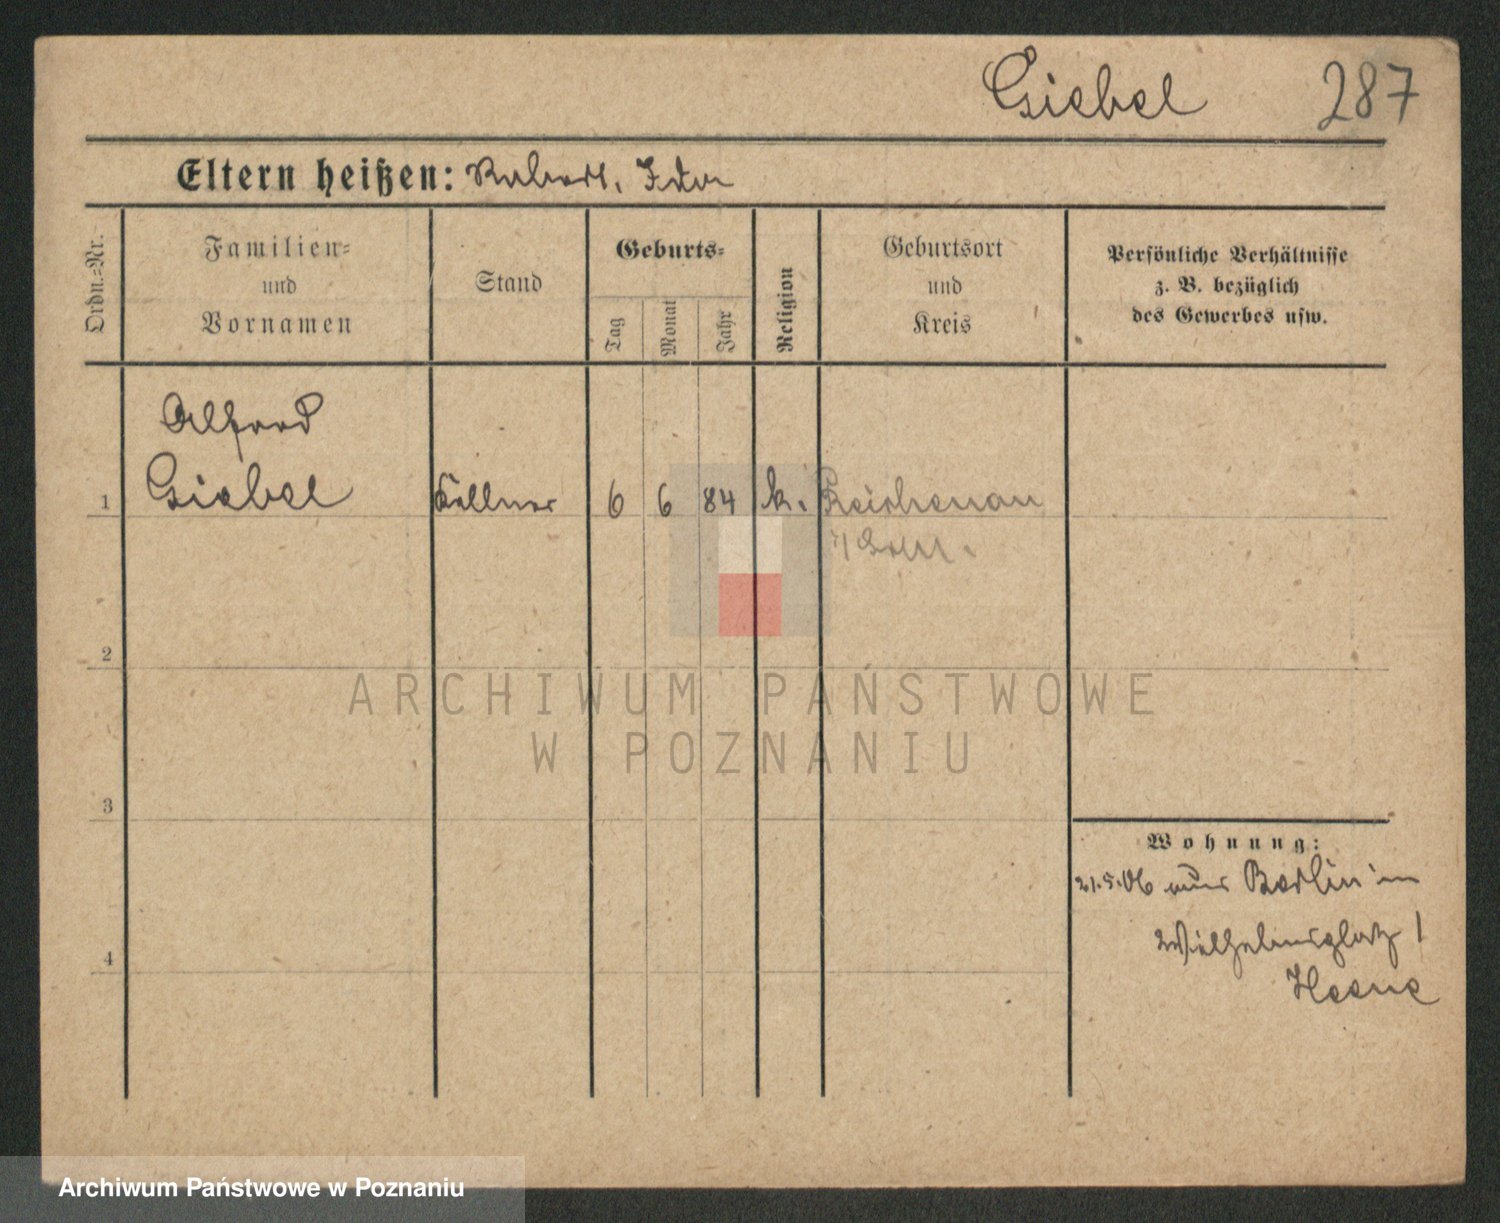 Giebel 287
Eltern heißen: Robert, Ida
Ordn.-Nr.
Familien-
und
Vornamen
Stand
Geburts-
Tag
Monat
Jahr
Religion
Geburtsort
und
Kreis
Persönliche Verhältnisse
z. B. bezüglich
des Gewerbes usw.
Alfred
1 Giebel Kellner 6 6 84 k. Reichenau
2
3
4
Wohnung:
21.5.06 aus Berlin in
Wilhelmsplatz 1
ARCHIWUM PAŃSTWOWE
W POZNANIU
Archiwum Państwowe w Poznaniu